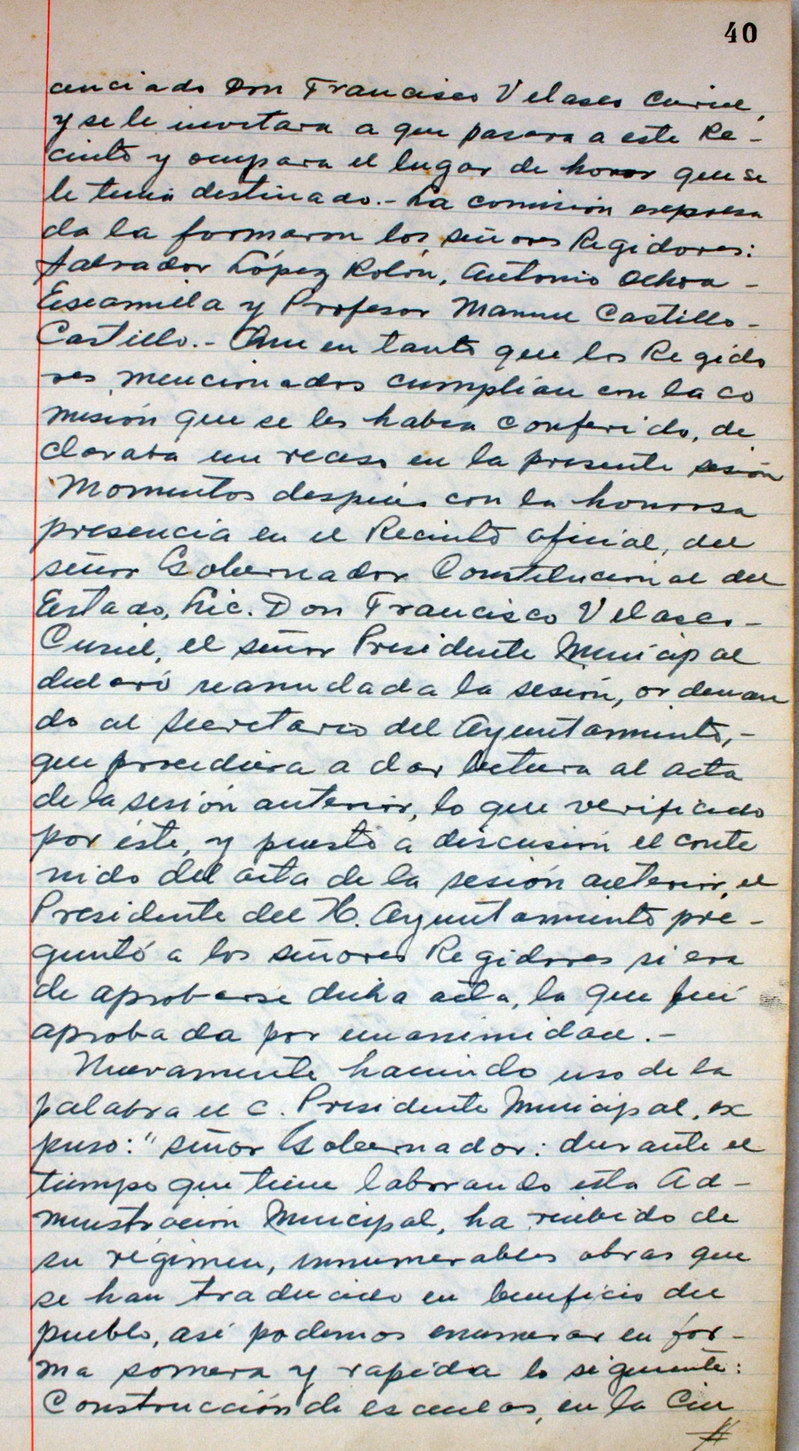 40
cenciado Don Francisco Velasco Curiel,
y se le invitara a que pasara a este Re-
cinto y ocupara el lugar de honor que se
le tenia destinado.- La comisión expresa
da la formaron los señores Regidores:
Salvador López Rolón, Antonio Ochoa-
Escamilla y Profesor Manuel Castillo-
Castillo.- Que en tanto que los Regido
res mencionados cumplían con la co
misión que se les habia conferido, de
claraba un receso en la presente sesión
Momentos después con la honrosa
presencia en el Recinto oficial, del
señor Gobernador Constitucional del
Estado, Lic. Don Francisco Velasco-
Curiel, el señor Presidente Municipal
declaró reanudada la sesión, ordenan
do al Secretario del Ayuntamiento,-
que procediera a dar lectura al acta
de la sesión anterior, lo que verificado
por éste, y puesto a discusión el conte
nido del acta de la sesión anterior, el
Presidente del H. Ayuntamiento pre-
guntó a los señores Regidores si era
de aprobarse dicha acta, la que fué
aprobada por unanimidad.-
Nuevamente haciendo uso de la
palabra el C. Presidente Municipal, ex
puso: "señor Gobernador: durante el
tiempo que tiene laborando esta Ad-
ministración Municipal, ha recibido de
su régimen, innumerables obras que
se han traducido en beneficio del
pueblo, así podemos enumerar en for-
ma somera y rapida lo siguiente:
Construcción de escuelas, en la Ciu
#